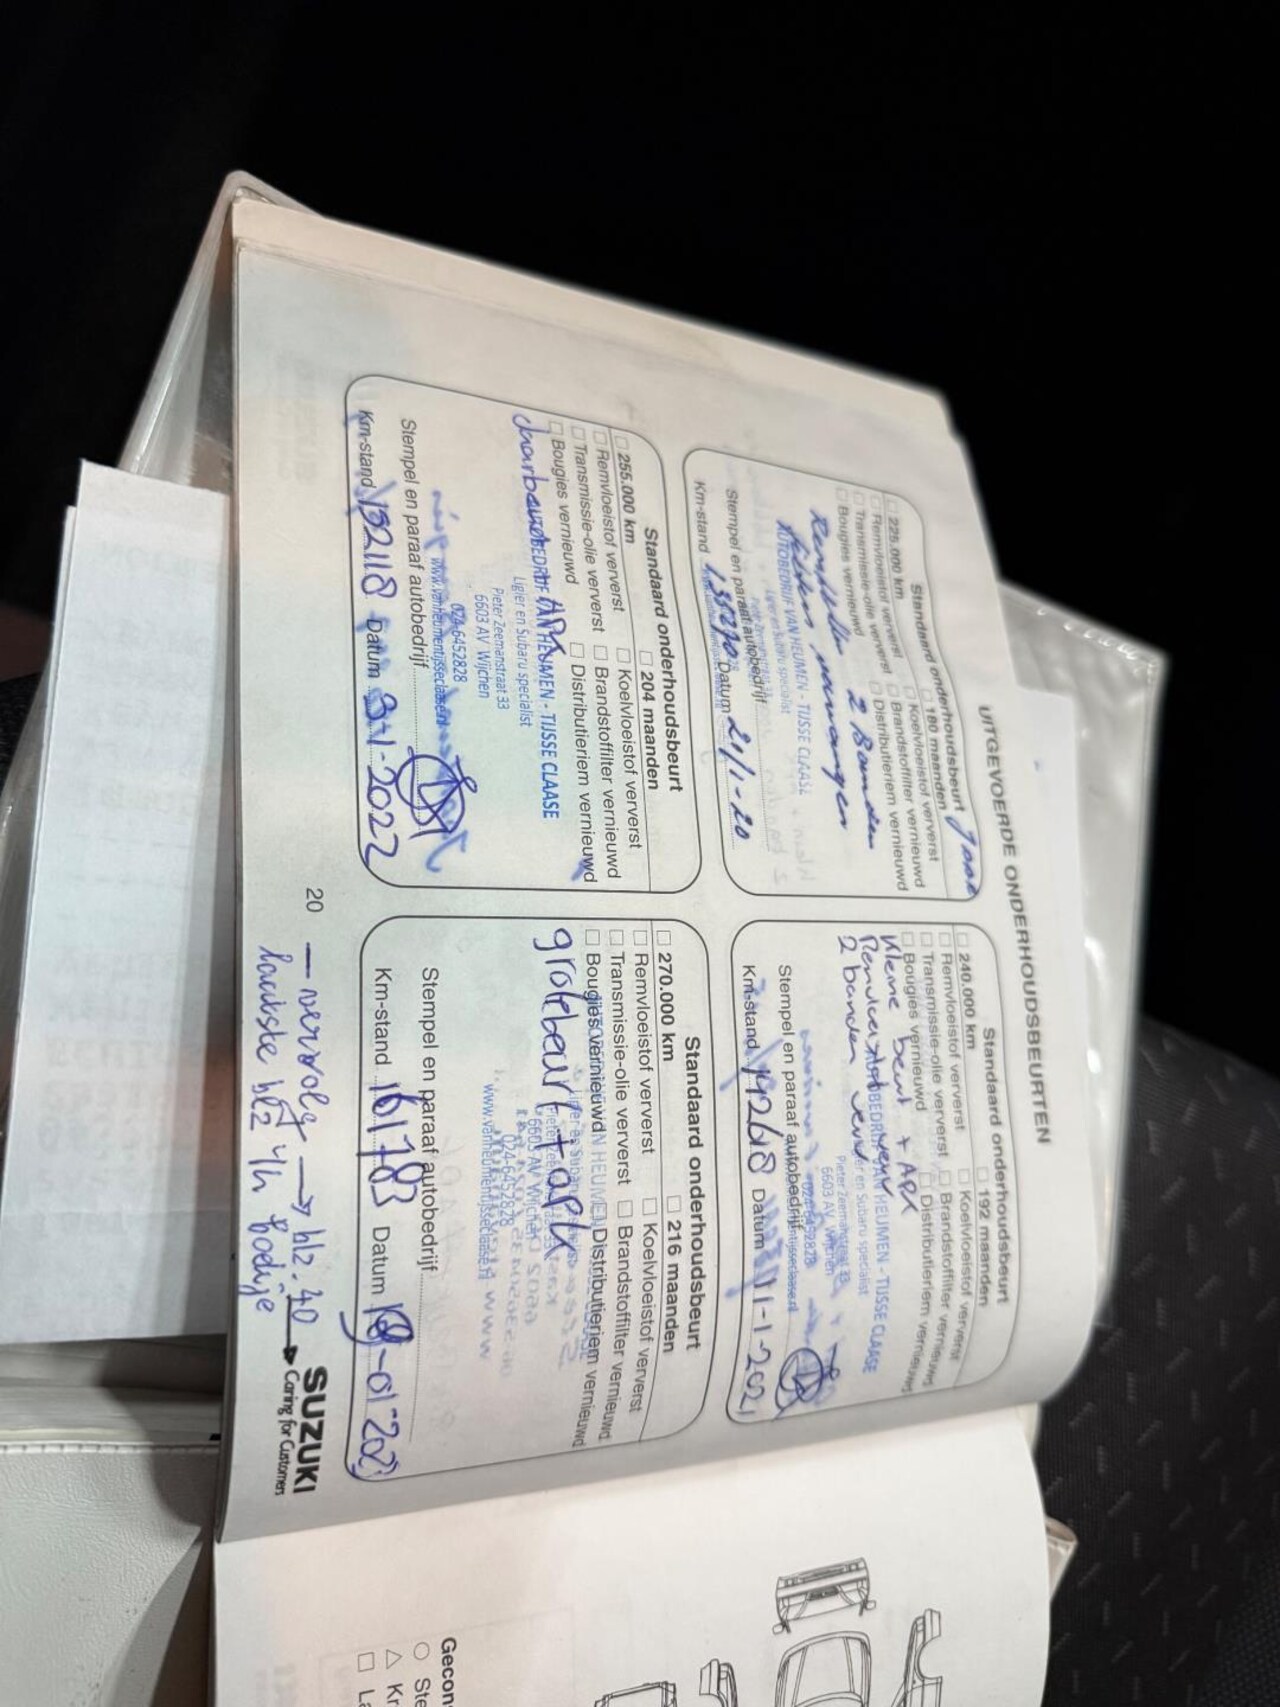 UITGEVOERDE ONDERHOUDSBEURTEN
Standaard onderhoudsbeurt
225.000 km
180 maanden
Remvloeistof ververst
Koelvloeistof ververst
Transmissie-olie ververst
Brandstoffilter vernieuwd
Bougies vernieuwd
Distributieriem vernieuwd
2 Banden
vervangen
AUTOBEDRIJF VAN HEUMEN - TIJSSE CLAASE
Ligier en Subaru specialist
Pieter Zeemanstraat 33
Stempel en paraaf autobedrijf
Km-stand
Datum 21-1-20
Standaard onderhoudsbeurt
240.000 km
192 maanden
Remvloeistof ververst
Koelvloeistof ververst
Transmissie-olie ververst
Brandstoffilter vernieuwd
Bougies vernieuwd
Distributieriem vernieuwd
Kleine beurt + APK
2 banden
AUTOBEDRIJF VAN HEUMEN - TIJSSE CLAASE
Ligier en Subaru specialist
Pieter Zeemanstraat 33
6603 AV Wijchen
024-6452828
Stempel en paraaf autobedrijf
Km-stand 142618 Datum 11-1-2021
Standaard onderhoudsbeurt
255.000 km
204 maanden
Remvloeistof ververst
Koelvloeistof ververst
Transmissie-olie ververst
Brandstoffilter vernieuwd
Bougies vernieuwd
Distributieriem vernieuwd
Jaarbeurt APK
AUTOBEDRIJF VAN HEUMEN - TIJSSE CLAASE
Ligier en Subaru specialist
Pieter Zeemanstraat 33
6603 AV Wijchen
024-6452828
www.vanheumentijsseclaase.nl
Stempel en paraaf autobedrijf
Km-stand 152118 Datum 3-1-2022
Standaard onderhoudsbeurt
270.000 km
216 maanden
Remvloeistof ververst
Koelvloeistof ververst
Transmissie-olie ververst
Brandstoffilter vernieuwd
Bougies vernieuwd
Distributieriem vernieuwd
grotebeurt + apk
6603 AV Wijchen
024-6452828
www.vanheumentijsseclaase.nl
Stempel en paraaf autobedrijf
Km-stand 161783 Datum 19-01-2023
20
— vervolg → blz. 40
laatste blz v/h boekje
SUZUKI
Caring for Customers